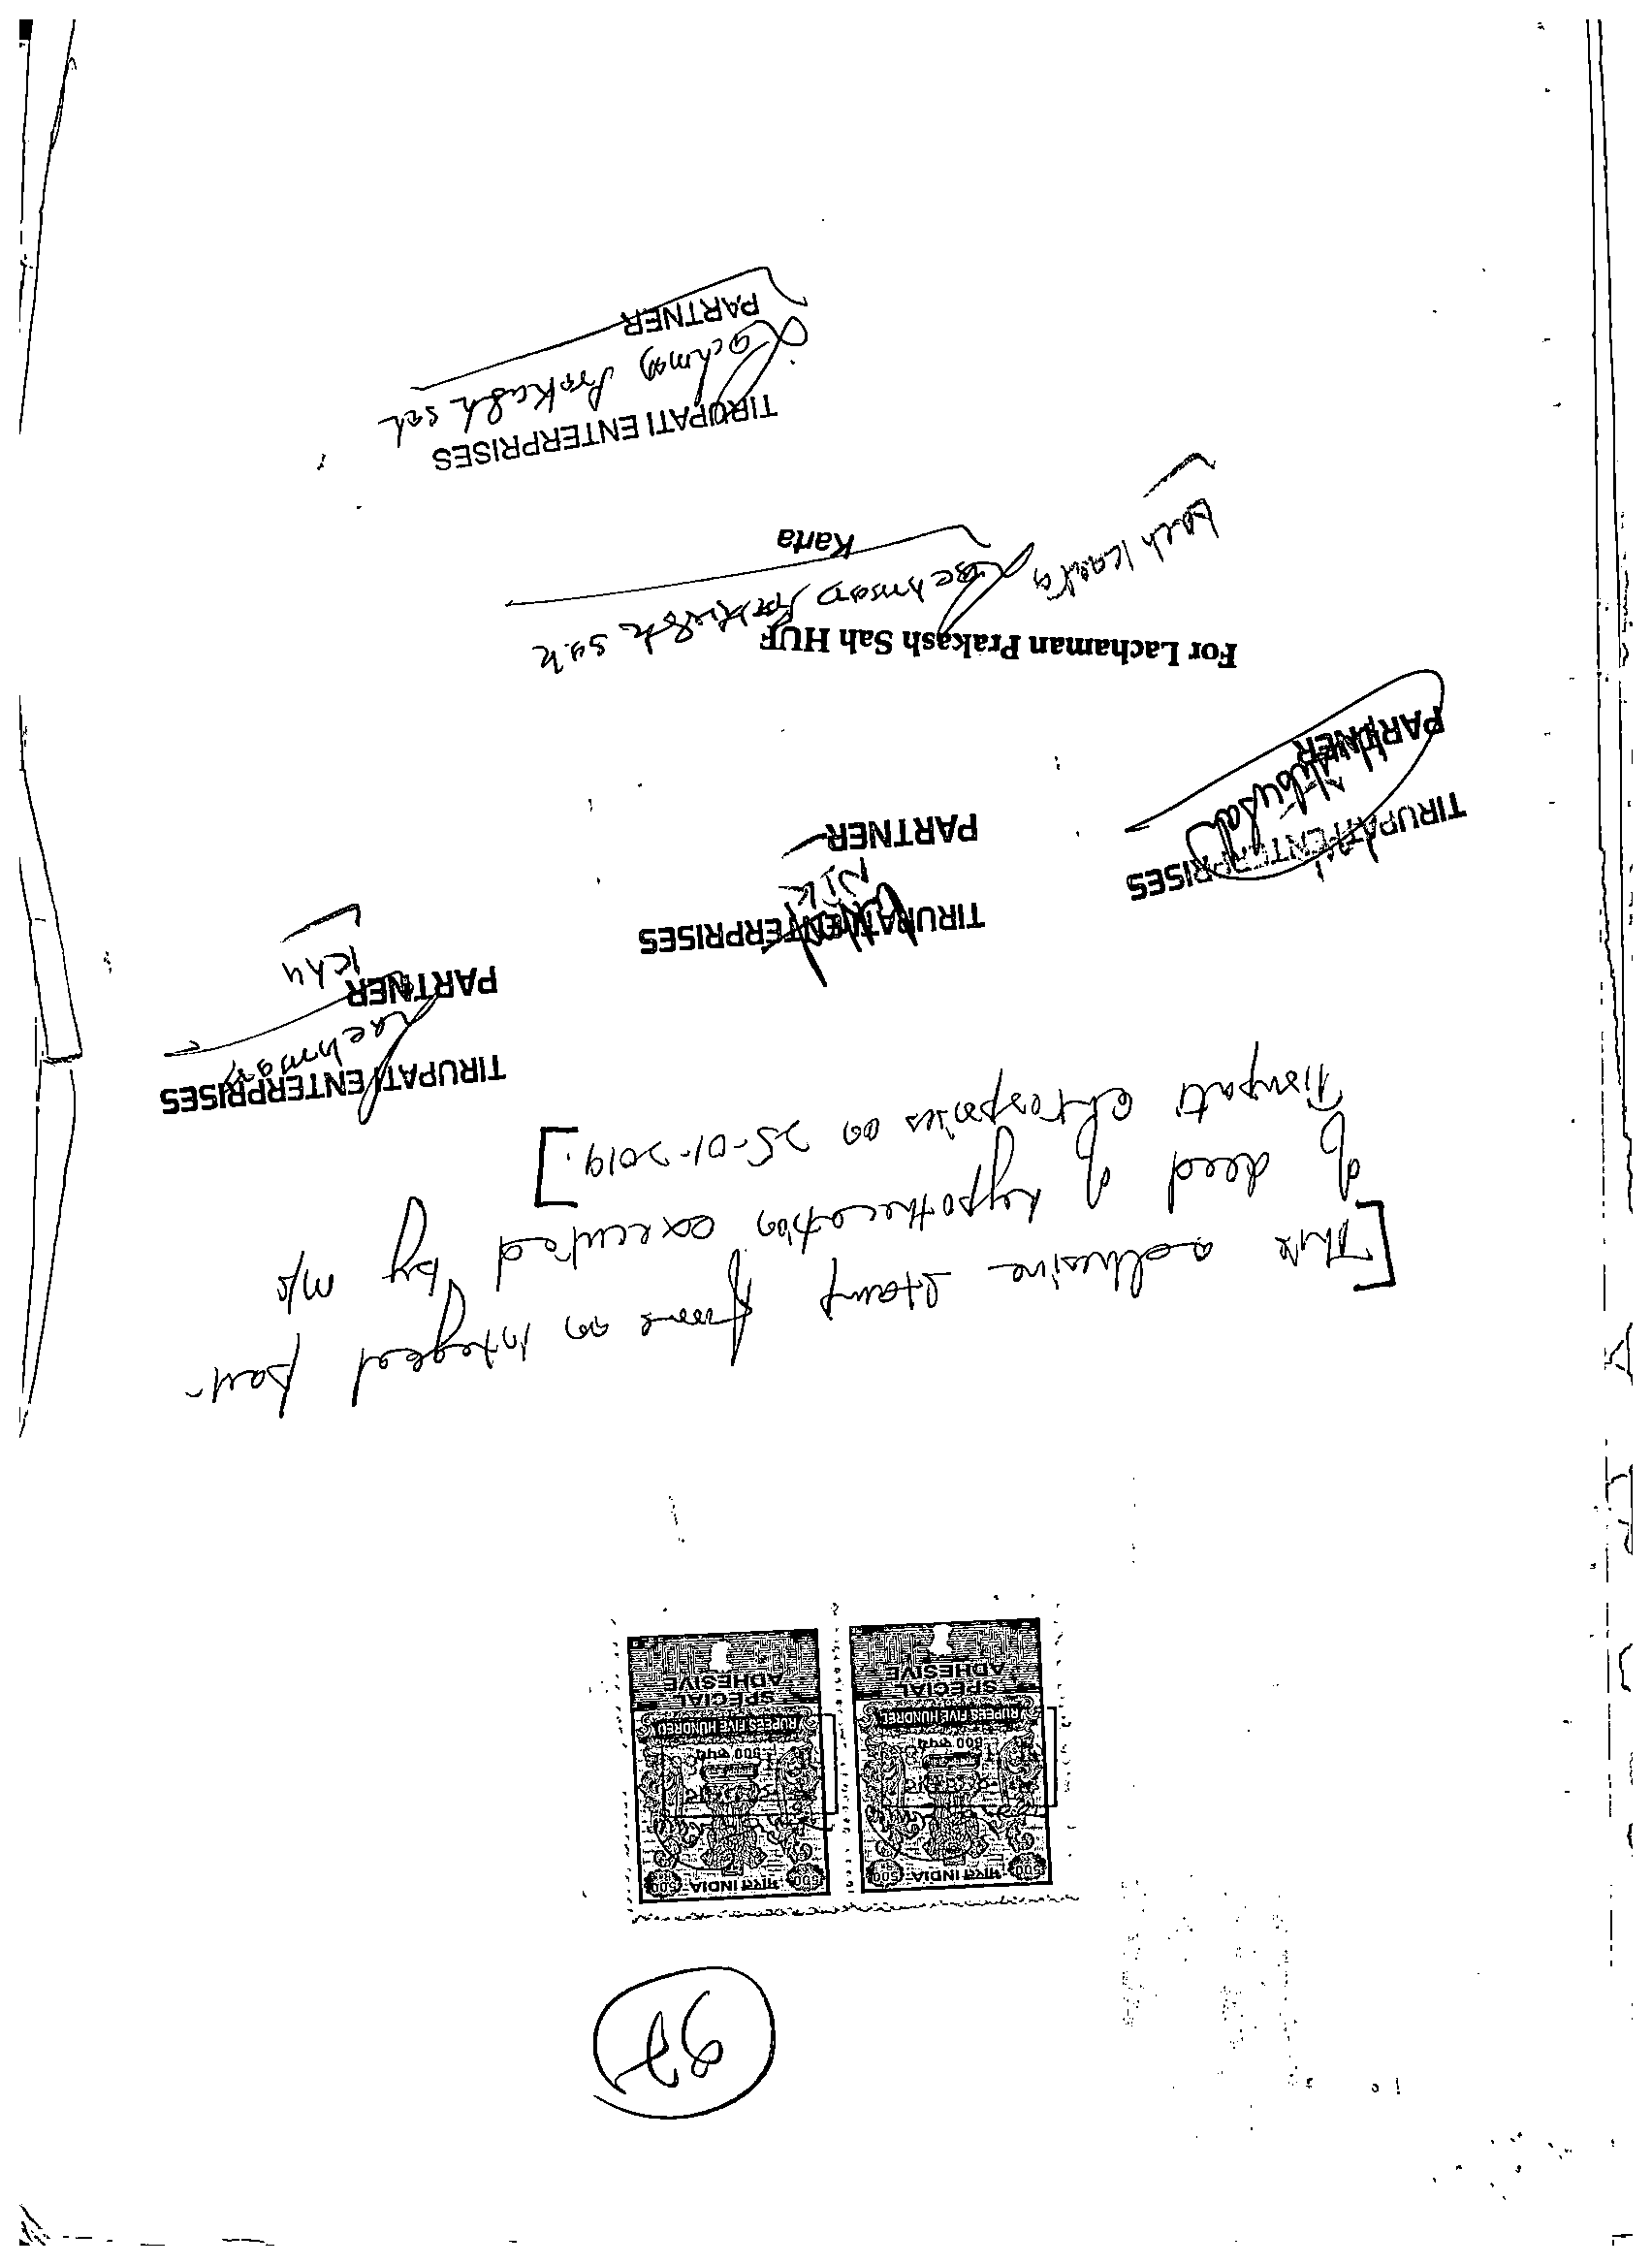 भारत INDIA भारत INDIA
500 500 500 500
500 रुपये 500 रुपये
RUPEES FIVE HUNDRED RUPEES FIVE HUNDRED
SPECIAL SPECIAL
ADHESIVE ADHESIVE
[This adhesive stamp forms an integral part
of deed of hypothecation executed by M/s
Tirupati Enterprises on 25-01-2019.]
TIRUPATI ENTERPRISES
Lachman
PARTNER
TIRUPATI ENTERPRISES
PARTNER
TIRUPATI ENTERPRISES
PARTNER
For Lachaman Prakash Sah HUF
Lachman Prakash Sah
Karta
TIRUPATI ENTERPRISES
Lachman Prakash Sah
PARTNER